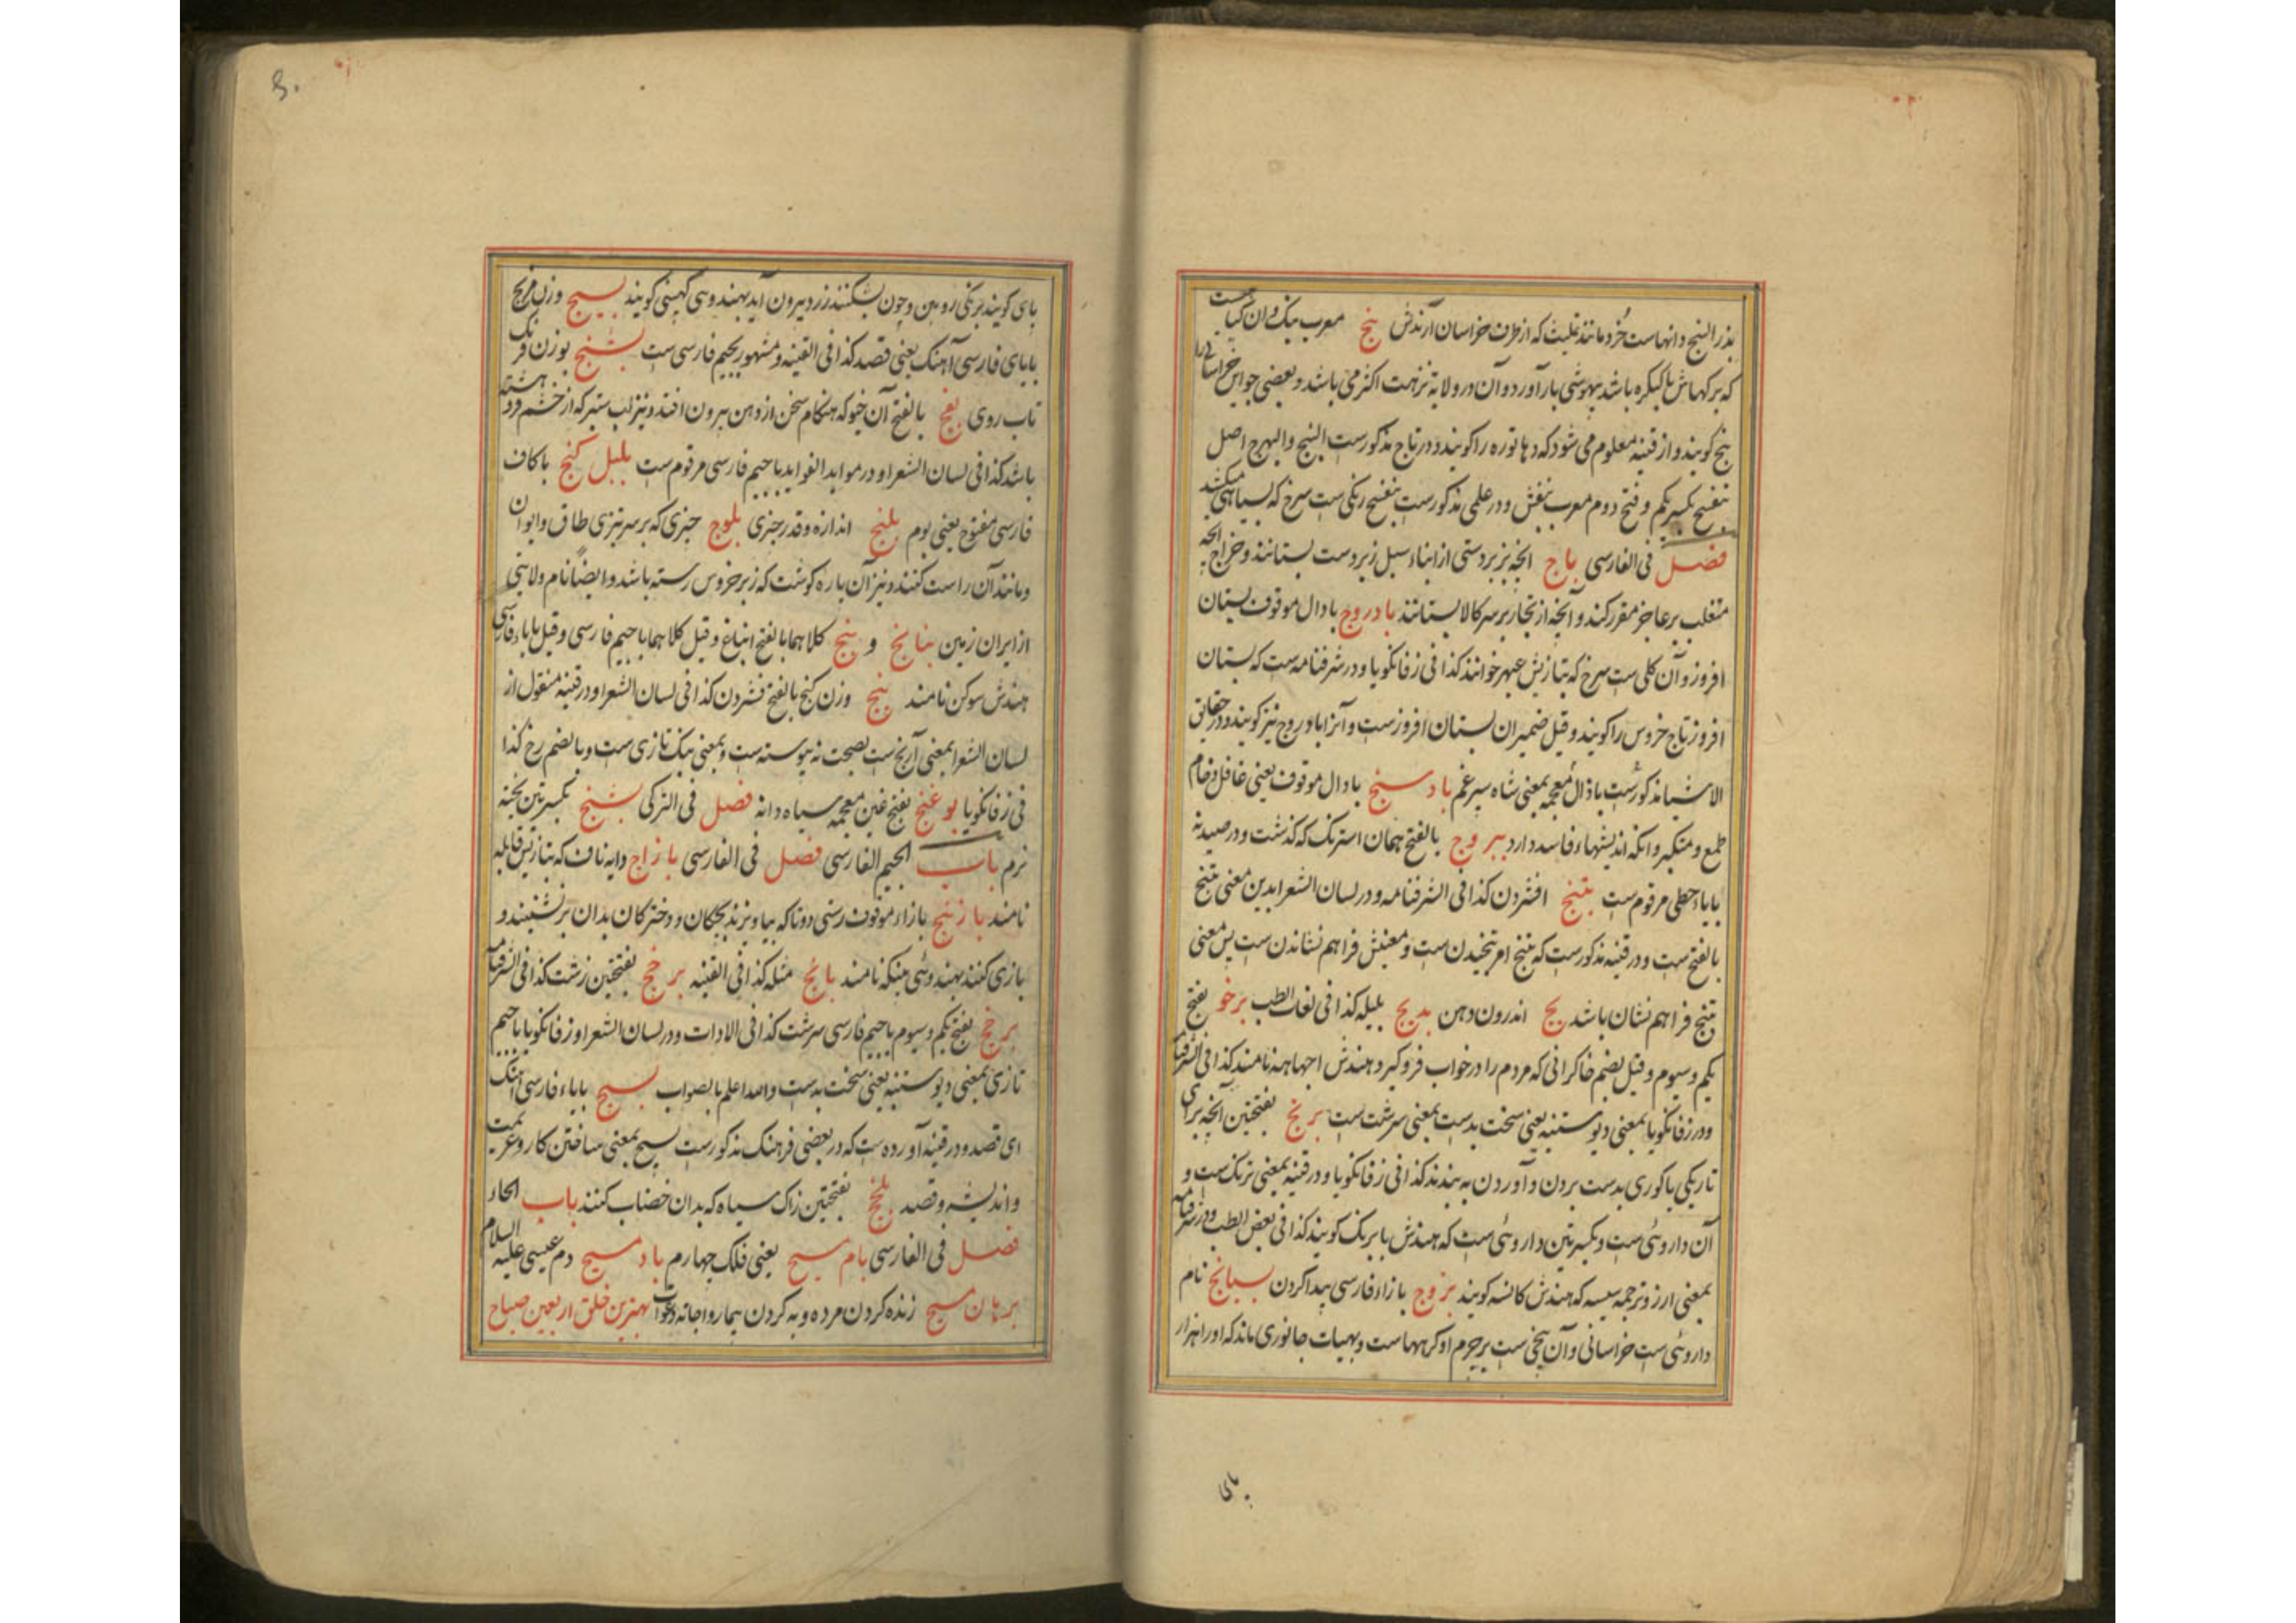 بذر البنج دانهاست خرد مانند غلیث که از طرف خراسان آرندش بنج معرب بنک و ان کیاهیست
که برکهاش باشد بیهوشی بار آورد و آن در ولایة نزهت اکثر می باشد و بعضی جواین خراسانی را
بنج کویند و از قنیه معلوم می شود که دهاتوره را کویند و در تاج مذکورست البنج والبهرج اصل
بنفسج بکسر یکم و فتح دوم معرب بنفش و در علمی مذکورست بنفسج رنکی ست سرخ که بسیاهی میکشد
فصل فی الفارسی باج انچه بزبردستی از ابناء سبیل زیردست بستانند و خراج انچه
متغلب بر عاجز مقرر کند و آنچه از تجار بر سر کالا بستانند بادروج با دال موقوف بستان
افروز و آن کلی ست سرخ که بتازیش عبهر خوانند کذا فی زفانکویا و در شرفنامه ست که بستان
افروز تاج خروس را کویند و قیل ضمیران بستان افروزست و آنرا بادروج نیز کویند و در حقایق
الاشیا مذکورست با ذال معجمه بمعنی شاه سپرغم بادسنج با دال موقوف یعنی غافل و خام
طمع و متکبر و انکه اندیشهاء فاسد دارد ببروج بالفتح همان استرنک که کذشت و در صیدنه
بایاء حطی مرقوم ست بتنج افشردن کذا فی الشرفنامه و در لسان الشعرا بدین معنی تنج
بالفتح ست و در قنیه مذکورست که تنج امر تنجیدن ست و معنیش فراهم نشاندن ست پس معنی
بتنج فراهم نشان باشد بج اندرون دهن بدیج بلیله کذا فی لغات الطب برخو بفتح
یکم و سیوم و قیل بضم خاکرانی که مردم را در خواب فرو کیرد و هندش اجهاهه نامند کذا فی الشرفنامه
و در زفانکویا بمعنی دیو ستنبه یعنی سخت بدست بمعنی سرشت ست برنج بفتحتین آنچه برای
تاریکی یا کوری بدست بردن و آوردن به بندند کذا فی زفانکویا و در قنیه بمعنی ترنک ست و
آن داروئی ست و بکسرتین داروئی ست که هندش بابرنک کویند کذا فی بعض الطب و در شرفنامه
بمعنی ارز و ترجمه سیسه که هندش کانسه کویند بزوج با زاء فارسی پیدا کردن بسبانج نام
داروئی ست خراسانی و آن بیخی ست بر جرم او کرهها ست و بهیات جانوری ماند که او را هزار
پای
پای کویند برنکی زرد بین و چون بشکنند زرد بیرون آید بهندوی کهنی کویند بسیج وزن مریخ
بابای فارسی آهنک یعنی قصد کذا فی القنیه و مشهور بجیم فارسی ست بشنج بوزن فرنک
تاب روی بفج بالفتح آن خیو که هنکام سخن از دهن بیرون افتد و نیز لب ستبر که از خشم فرد هشته
باشد کذا فی لسان الشعرا و در مواید الفواید باجیم فارسی مرقوم ست بلبل کنج با کاف
فارسی مفتوح یعنی بوم بلنج اندازه و قدر چیزی بلوج چیزی که بر سر تیزی طاق و ایوان
و مانند آن راست کنند و نیز آن پاره کوشت که زبر خروس رسته باشد و ایضا نام ولایتی
از ایران زمین بنانج و بنج کلاهما بالفتح انباغ و قیل کلاهما باجیم فارسی و قیل باباء فارسی
هندش سوکن نامند بنج وزن کنج بالفتح فشردن کذا فی لسان الشعرا و در قنیه منقول از
لسان الشعرا بمعنی آرنج ست بصحت نه پیوسته ست و بمعنی بنک تازی ست و بالضم رخ کذا
فی زفانکویا بوغنج بفتح غین معجمه سیاه دانه فصل فی الترکی بشنج بکسرتین پخته
نرم باب الجیم الفارسی فصل فی الفارسی بازاج دایه ناف که بتازیش قابله
نامند بازنج بازاء موقوف رسنی دوتا که بیاویزند بچکان و دخترکان بدان برنشینند و
بازی کنند بهندوئی هینکه نامند بانج مثله کذا فی القنیه برخج بفتحتین زشت کذا فی الشرفنامه
برخج بفتح یکم و سیوم باجیم فارسی سرشت کذا فی الادات و در لسان الشعرا و زفانکویا باجیم
تازی بمعنی دیو ستنبه یعنی سخت بدست والله اعلم بالصواب بسیج باباء فارسی آهنک
ای قصد و در قنیه آورده ست که در بعضی فرهنک مذکورست بسیج بمعنی ساختن کار و عزیمت
و اندیشه و قصد بلخج بفتحتین زاک سیاه که بدان خضاب کنند باب الحاء
فصل فی الفارسی بام مسیح یعنی فلک چهارم باد مسیح دم عیسی علیه السلام
برهان مسیح زنده کردن مرده و به کردن بیمار و اجابه دعوات بهترین خلق اربعین صباح